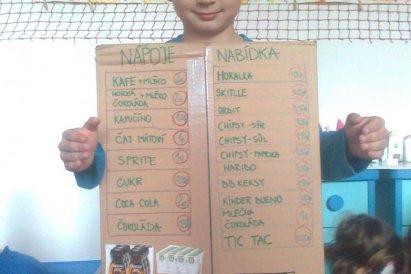 NÁPOJE
KAFE + MLÉKO
HORKÁ + MLÉKO
ČOKOLÁDA
KAPUČÍNO
ČAJ MÁTOVÝ
SPRITE
CUKR
COCA COLA
ČOKOLÁDA
NABÍDKA
HORALKA
SKITLLE
ORBIT
CHIPSY-SÝR
CHIPSY-SŮL
CHIPSY-PAPRIKA
HARIBO
BB KEKSY
KINDER BUENO
MLÉČNÁ
ČOKOLÁDA
TIC TAC